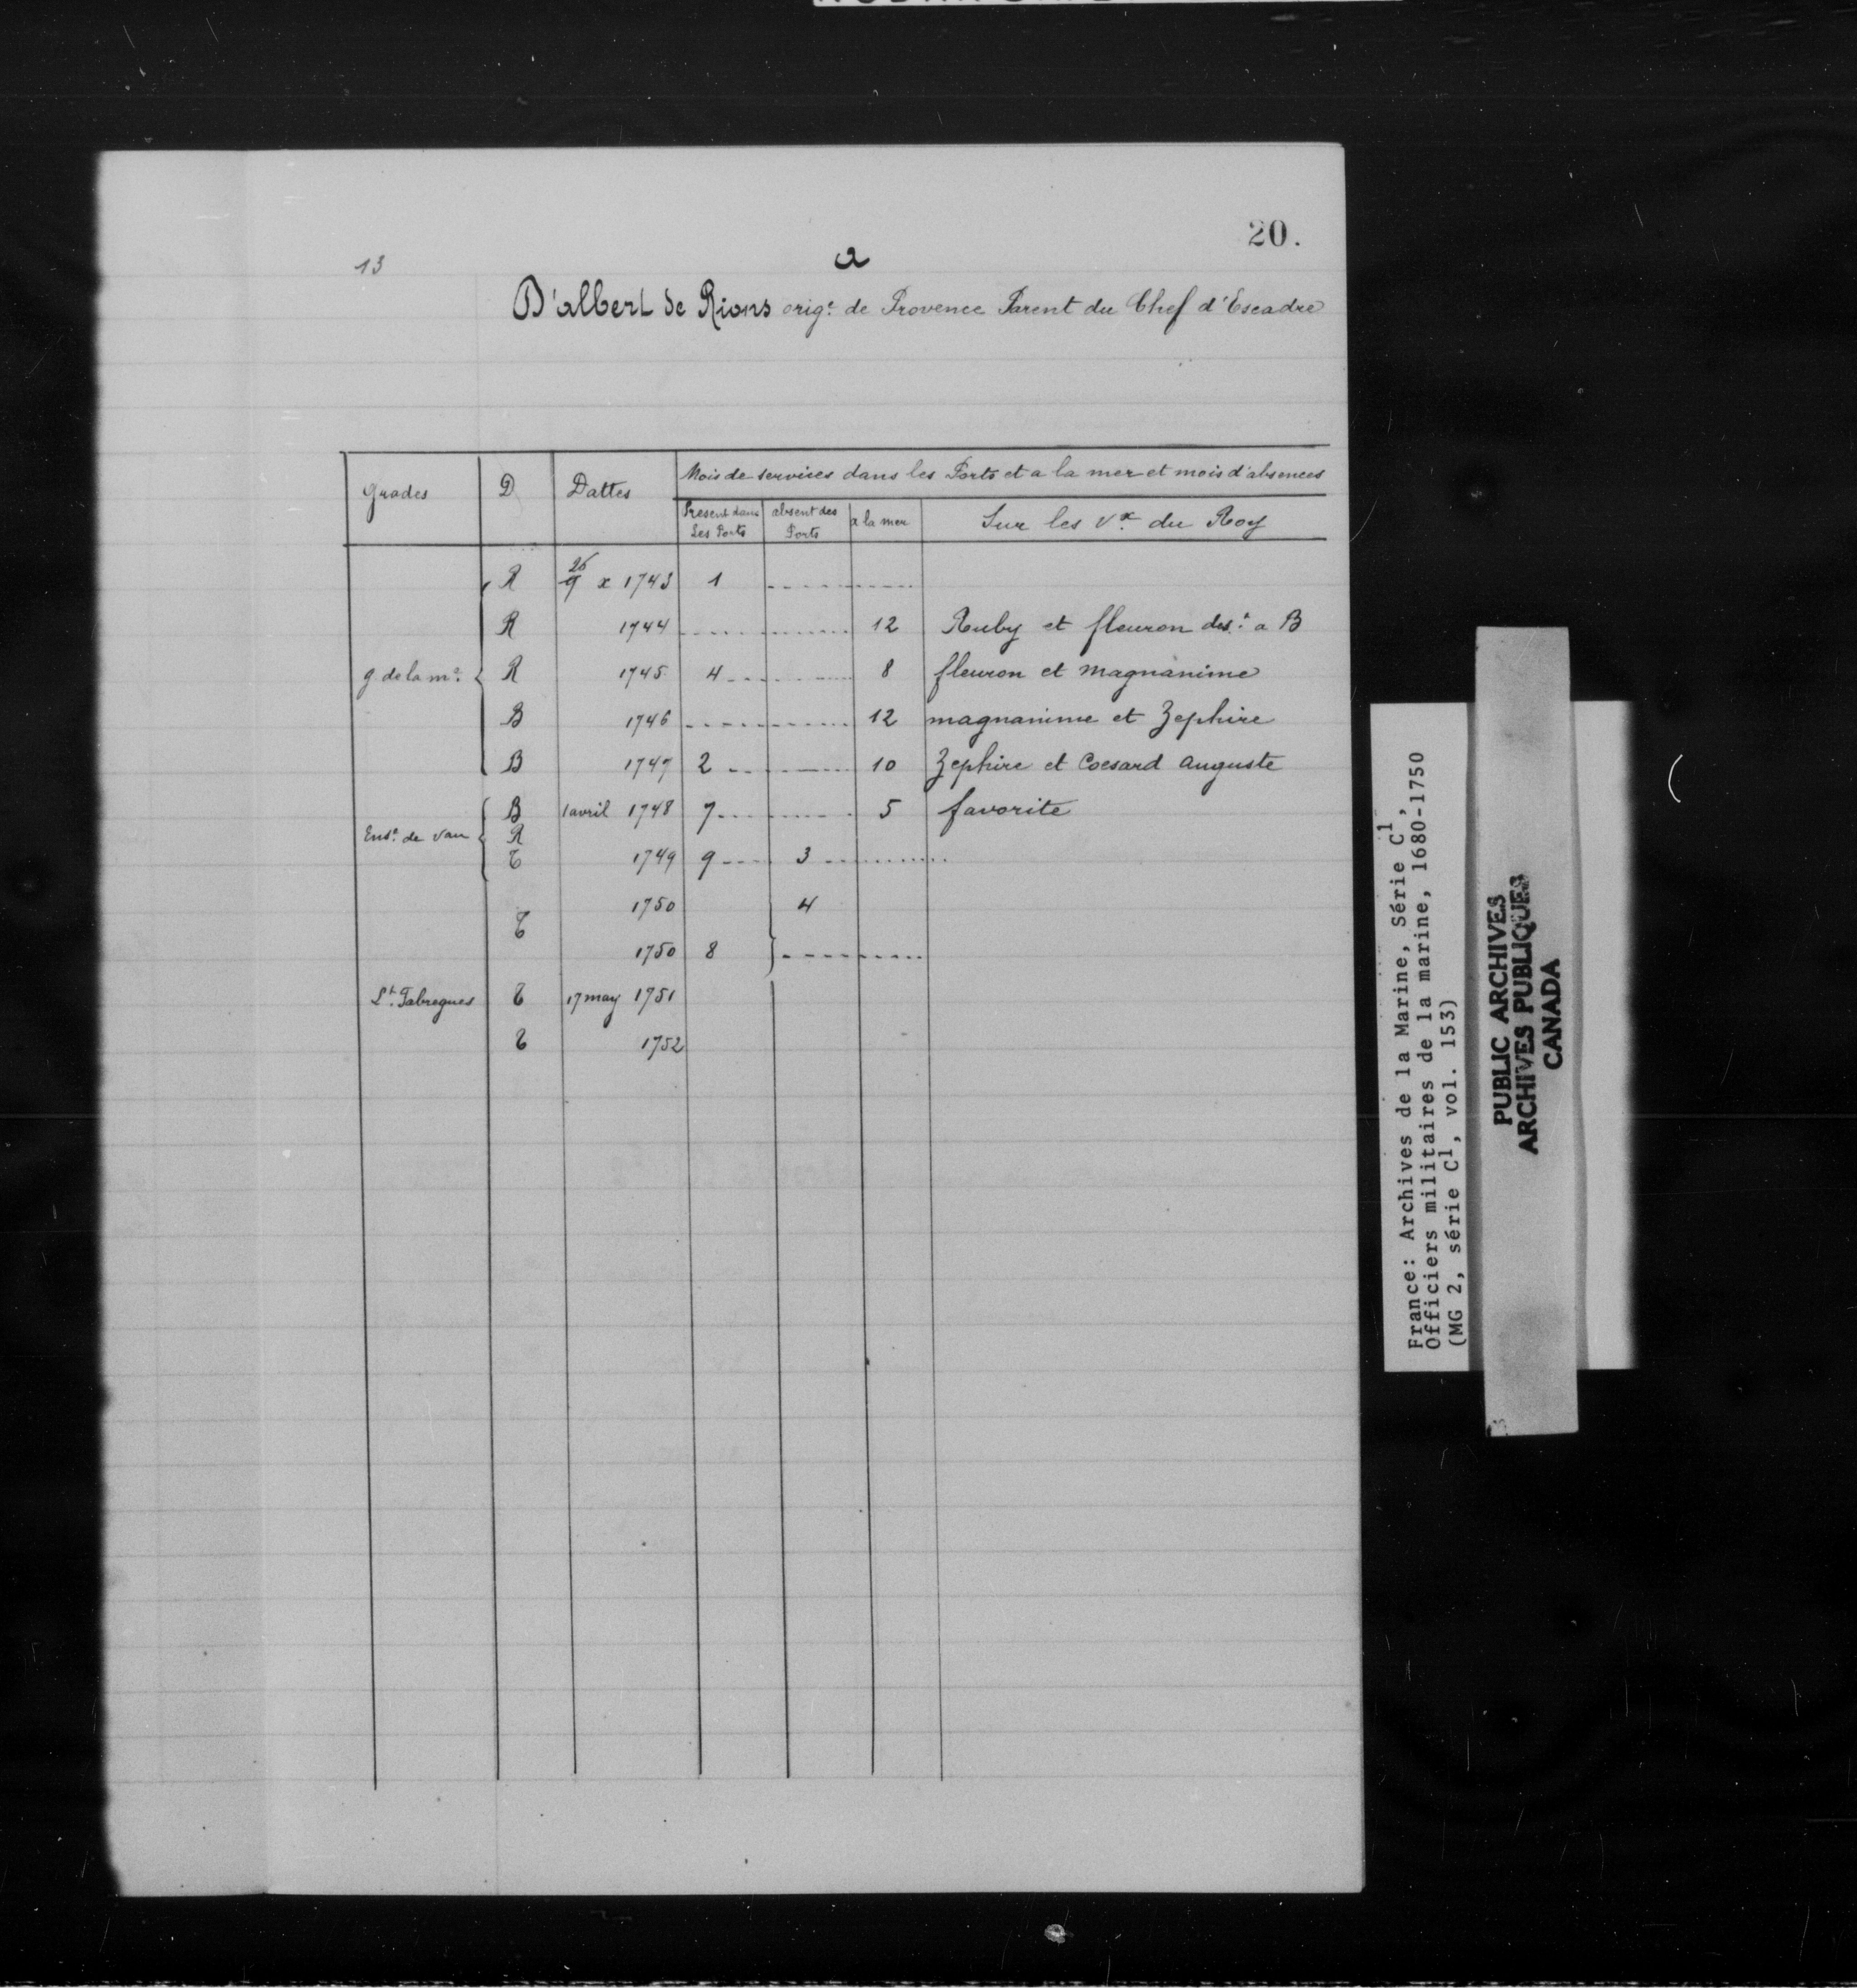 20.
13
a
D'albert de Rions orig.e de Provence Parent du Chef d'Escadre
Grades D Dattes Mois de services dans les Ports et a la mer et mois d'absences
Present dans Les Ports absent des Ports a la mer Sur les Vx du Roy
R 26 x 1743 1
R 1744 12 Ruby et fleuron des.t a B
g de la m.e R 1745 4 8 fleuron et magnanime
B 1746 12 magnanime et Zephire
B 1747 2 10 Zephire et Coesard auguste
B 1 avril 1748 7 5 favorite
Ens.e de Vau R
T 1749 9 3
1750 4
T
1750 8
Lt. Fabregues T 17 may 1751
T 1752
France: Archives de la Marine, Série C1,
Officiers militaires de la marine, 1680-1750
(MG 2, série C1, vol. 153)
PUBLIC ARCHIVES
ARCHIVES PUBLIQUES
CANADA